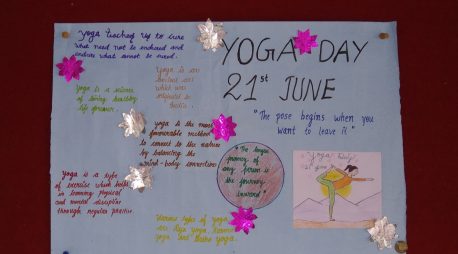 Yoga teaches us to cure
what need not to endured and
endure what cannot be cured.
YOGA DAY
21st JUNE
"The pose begins when you
want to leave it"
Yoga is an
which was
Yoga is a science
of living healthy
life forever.
yoga is the most
favourable method
to connect to the nature
by balancing the
mind-body connection
"The longest
journey of
any person is
the journey
inward"
Yoga
Yoga is a type
of exercise which helps
in learning physical
and mental discipline
through regular practice.
Various types of yoga
are
yoga and Hatha Yoga.